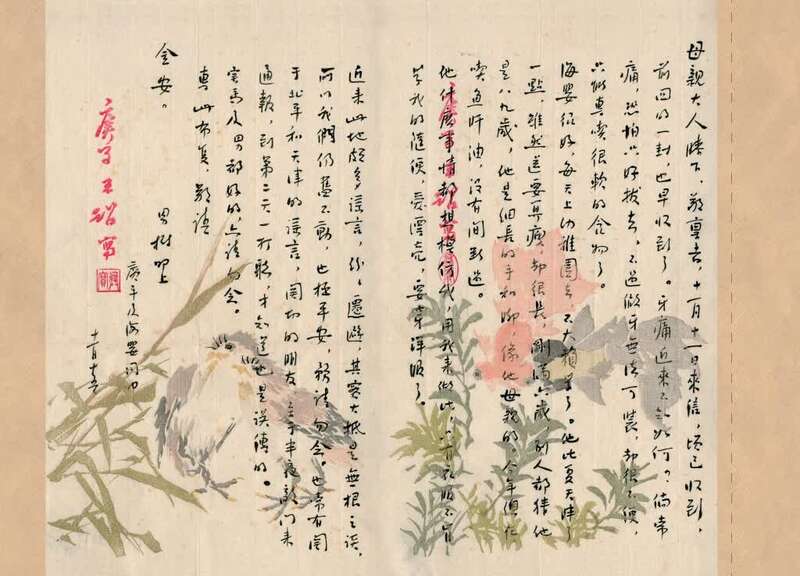 母親大人膝下，敬稟者，十一月十一日來信，頃已收到，
前回的一封，也早收到了。牙痛近來不知如何？倘常
痛，恐怕只好拔去，不過做牙無法可裝，卻很不便，
只能專喫很軟的食物了。
海嬰很好，每天上幼稚園去，不大賴學了。他比夏天胖了
一點，雖然還要算瘦，卻很長，剛滿六歲，別人都猜他
是八九歲，他是細長的手和腳，像他母親的。今年總在
喫魚肝油，沒有間斷過。
他什麼事情都想模仿我，用我來做比，只有衣服不肯
學我的隨便，愛漂亮，要穿洋服了。
近來此地頗多謠言，紛紛遷避，其實大抵是無根之談，
所以我們仍舊不動，也極平安，務請勿念。也常有關
于北平和天津的謠言，關切的朋友，至于半夜敲門來
通報，到第二天一打聽，才知道也是誤傳的。
害馬及男都好的，亦請勿念。
專此布復，敬請
金安。
男樹叩上
廣平及海嬰同叩
十一月十五